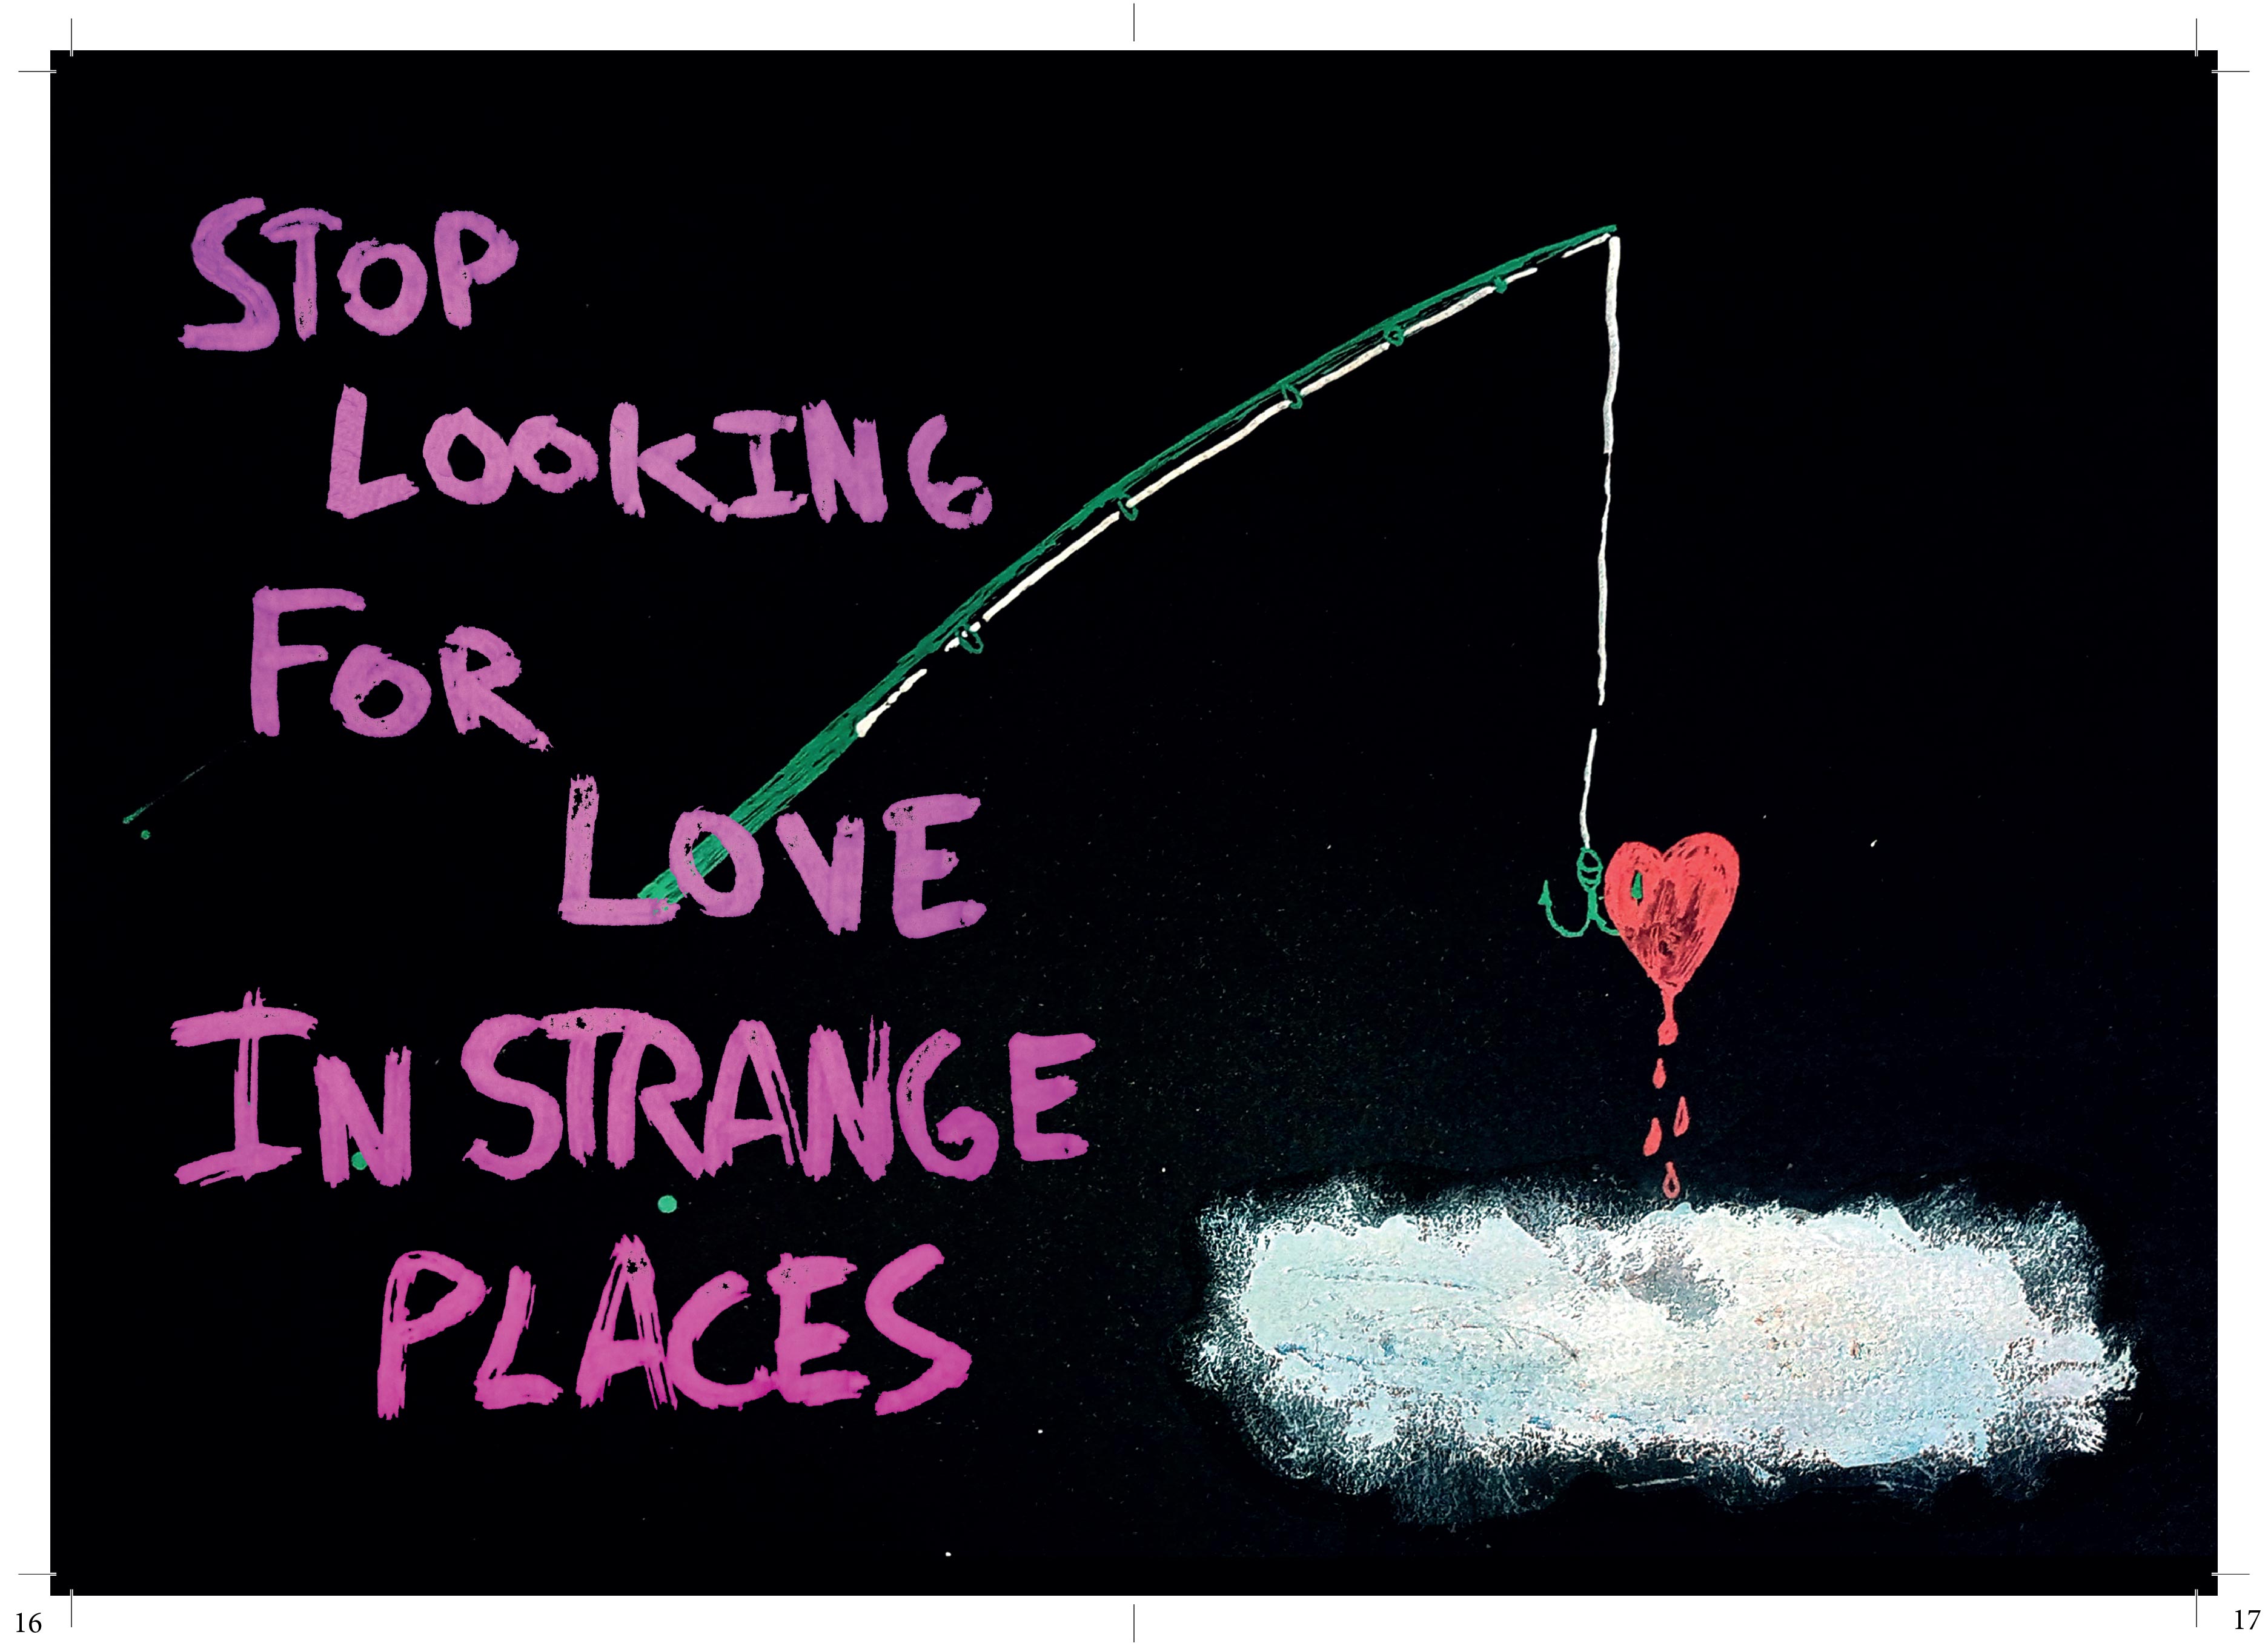 STOP
LOOKING
FOR
LOVE
IN STRANGE
PLACES
16
17